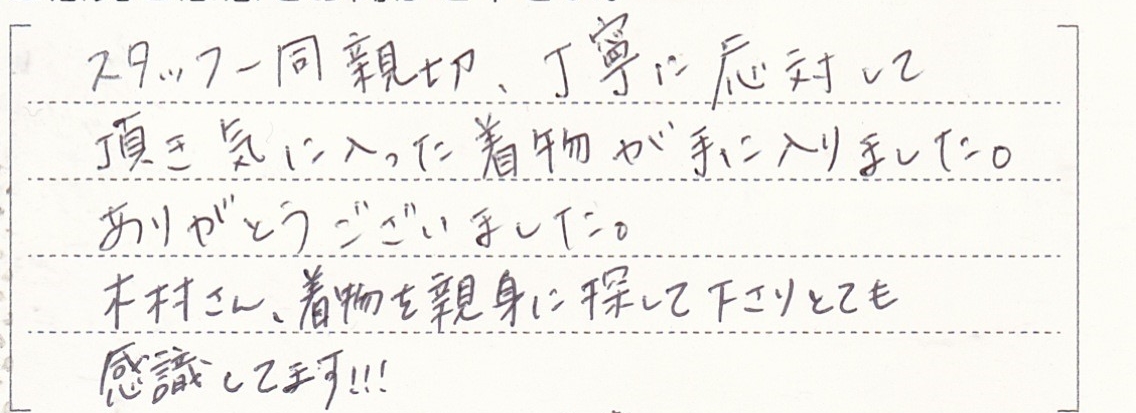 スタッフ一同親切、丁寧に応対して
頂き気に入った着物が手に入りました。
ありがとうございました。
木村さん、着物を親身に探して下さりとても
感識してます!!!